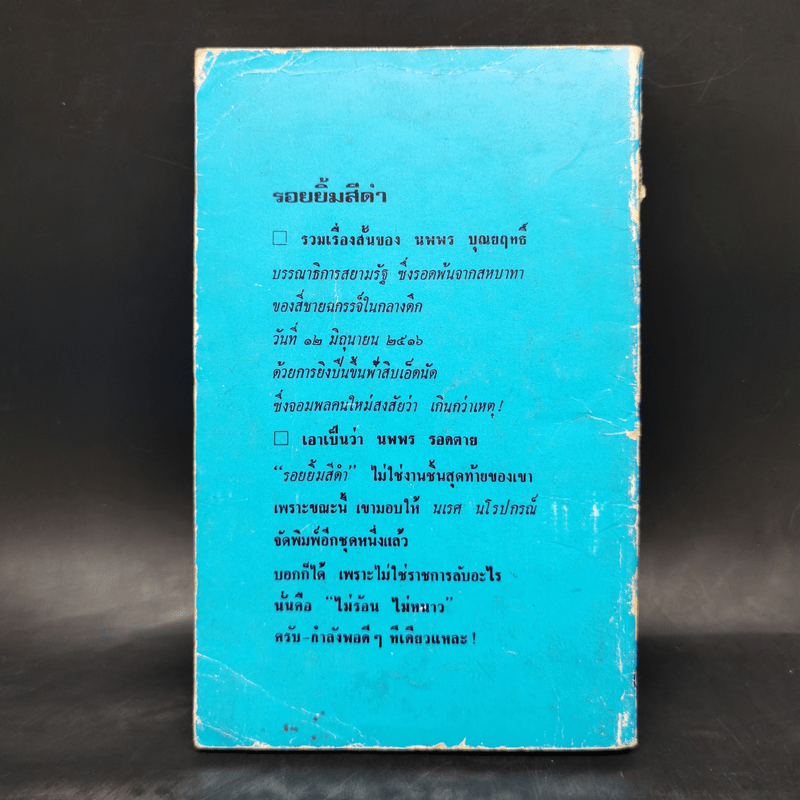 รอยยิ้มสีดำ
□ รวมเรื่องสั้นของ นพพร บุณยฤทธิ์
บรรณาธิการสยามรัฐ ซึ่งรอดพ้นจากสหบาทา
ของสี่ชายฉกรรจ์ในกลางดึก
วันที่ ๑๒ มิถุนายน ๒๕๑๖
ด้วยการยิงปืนขึ้นฟ้าสิบเอ็ดนัด
ซึ่งจอมพลคนใหม่สงสัยว่า เกินกว่าเหตุ!
□ เอาเป็นว่า นพพร รอดตาย
“รอยยิ้มสีดำ” ไม่ใช่งานชิ้นสุดท้ายของเขา
เพราะขณะนี้ เขามอบให้ นเรศ นโรปกรณ์
จัดพิมพ์อีกชุดหนึ่งแล้ว
บอกก็ได้ เพราะไม่ใช่ราชการลับอะไร
นั่นคือ “ไม่ร้อน ไม่หนาว”
ครับ-กำลังพอดีๆ ทีเดียวแหละ!